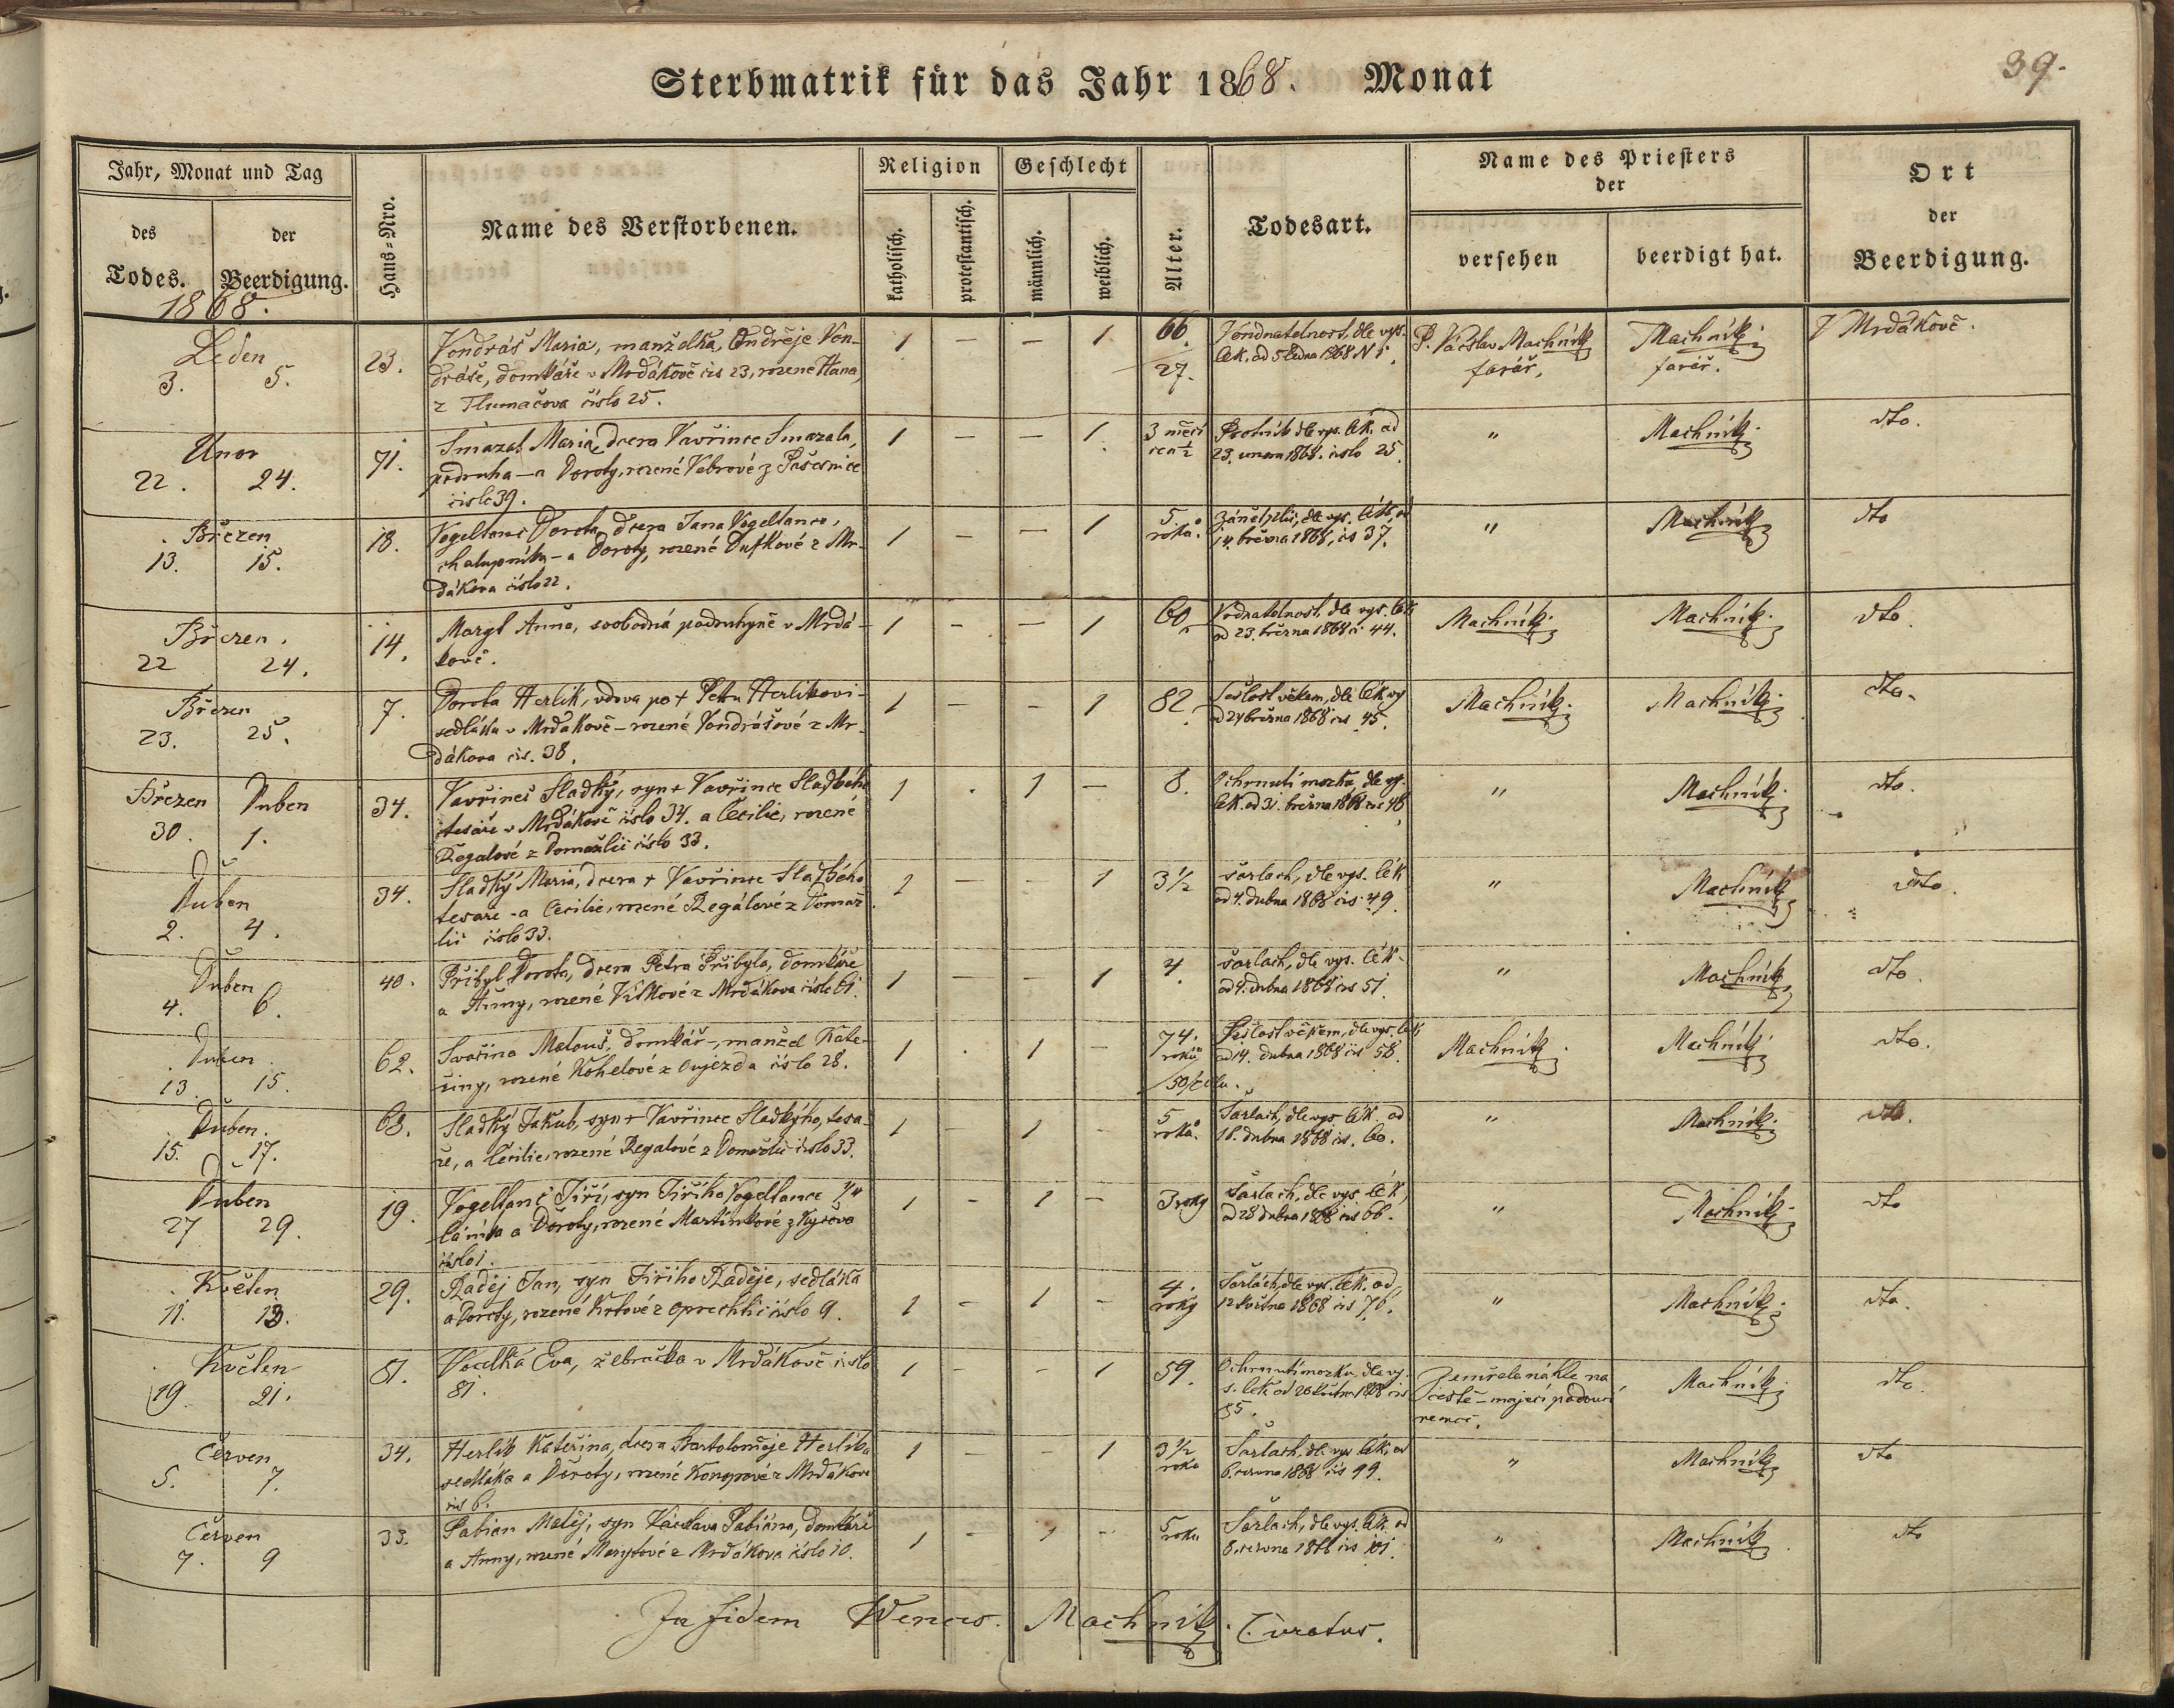 Sterbmatrik für das Jahr 1868. Monat
39.
Jahr, Monat und Tag
des Todes.
der Beerdigung.
Haus-Nro.
Name des Verstorbenen.
Religion
katholisch.
protestantisch.
Geschlecht
männlich.
weiblich.
Alter.
Todesart.
Name des Priesters
der
versehen
beerdigt hat.
Ort
der
Beerdigung.
1868.
Leden
3. 5.
23.
Vondráš Maria, manželka Ondřeje Von-
dráše, domkáře v Mrdákově čís 23, rozené Hana,
z Tlumačova číslo 25.
1 — — 1
66
27.
dle vys.
lék. od 5 ledna 1868 N 1.
P. Václav Machník
farář,
Machník
farář.
V Mrdákově.
Unor
22. 24.
71.
Smazal Maria, dcera Vavřince Smazala,
podruha — a Doroty, rozené Vebrové z Pašesnice
číslo 39.
1 — — 1
3 měsí
½
Psotník dle vys. lék. od
23. unora 1868. číslo 25.
"
Machník
dto.
Březen
13. 15.
18.
Vogeltanc Dorota, dcera Jana Vogeltance,
chalupníka — a Doroty, rozené Dufkové z Mr-
dákova číslo 22.
1 — — 1
5
roků.
Zánět plic, dle vys. lék. od
14. března 1868, čís 37.
"
Machník
dto
Březen.
22 24.
14.
Margl Anna, svobodná podruhyně v Mrdá-
kově.
1 — — 1
60
Vodnatelnost, dle vys. lék
od 23. března 1868 č 44.
Machník
Machník
dto.
Březen
23. 25.
7.
Dorota Herlík, vdova po + Petru Herlíkovi
sedláku v Mrdákově — rozené Vondrášové z Mr-
dákova čís. 38.
1 — — 1
82
Sešlost věkem, dle lék. vy
od 24 března 1868 čís 45.
Machník
Machník
dto.
Březen Duben
30. 1.
34.
Vavřinec Sladký, syn + Vavřince Sladkého
tesaře v Mrdákově číslo 34. a Cecilie, rozené
Regalové z Domažlic číslo 33.
1 . 1 —
8.
Ochrnutí mozku, dle vy.
lék. od 31. března 1868 čís 48.
"
Machník
dto.
Duben
2. 4.
34.
Sladký Maria, dcera + Vavřince Sladkého
tesaře — a Cecilie, rozené Regálové z Domaž
lic číslo 33.
1 — — 1
3½
šarlach, dle vys. lék
od 4. dubna 1868 čís. 49.
"
Machník
dto.
Duben
4. 6.
40.
Přibyl Dorota, dcera Petra Přibyla, domkáře
a Anny, rozené Vlkové z Mrdákova čísle 61.
1 — — 1
4
šarlach, dle vys. lék.
od 4. dubna 1868 čís 51.
"
Machník
dto.
Duben.
13 15.
62.
Svačina Matouš, domkář —, manžel Kate-
řiny, rozené Kohelové z Oujezda číslo 28.
1 . 1 —
74.
roků
Sešlost věkem, dle vys. lék,
od 14. dubna 1868 čís 58.
Machník
Machník
dto.
Duben.
15. 17.
63.
Sladký Jakub, syn + Vavřince Sladkýho, tesa-
ře, a Cecilie, rozené Regalové z Domažlic číslo 33.
1 — 1 —
5
roků.
Šarlach, dle vys. lék. od
16. dubna 1868 čís. 60.
"
Machník
dto.
Duben
27 29.
19.
Vogeltanc Jiří, syn Jiřího Vogeltance ¼
láníka a Doroty, rozené Martínkové z Kyčova
číslo 1.
1 — 1 —
3 roky
Šarlach, dle vys. lék,
od 28 dubna 1868 čís 66.
"
Machník
dto
Květen
11. 13.
29.
Raděj Jan, syn Jiřího Raděje, sedláka
a Doroty, rozené Krtové z Oprechtic číslo 9.
1 — 1 —
4.
roky
Šarlach, dle vys. lék. od
12 května 1868 čís 76.
"
Machník
dto.
Květen
19. 21.
81.
Vocelka Eva, žebračka v Mrdákově číslo
81.
1 — — 1
59.
Ochrnutí mozku, dle vy.
s. lék od 20 května 1868 čís
85.
Zemřela náhle na
cestě — mající padoucí
nemoc.
Machník
dto.
Červen
5. 7.
34.
Herlík Kateřina, dcera Bartoloměje Herlíka
sedláka a Doroty, rozené Konopové z Mrdákova
čís 6.
1 — — 1
3½
roku
Šarlach, dle vys. lék. od
6. června 1868 čís 99.
"
Machník
dto
Červen
7. 9
33.
Fabian Matěj, syn Václava Fabiána, domkáře
a Anny, rozené Marglové z Mrdákova číslo 10.
1 — 1 —
5
roku
Šarlach, dle vys. lék. od
8. června 1868 čís 101.
"
Machník
dto
In fidem Wences. Machník. Curatus.